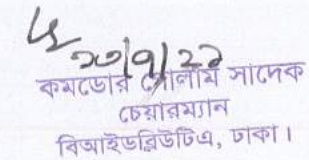 ২০/৭/২১
কমডোর গোলাম সাদেক
চেয়ারম্যান
বিআইডব্লিউটিএ, ঢাকা।